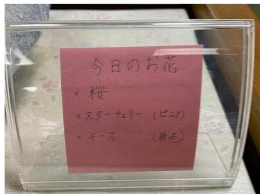 今日のお花
• 桜
• スターチェリー (ピンク)
• チース (黄色)